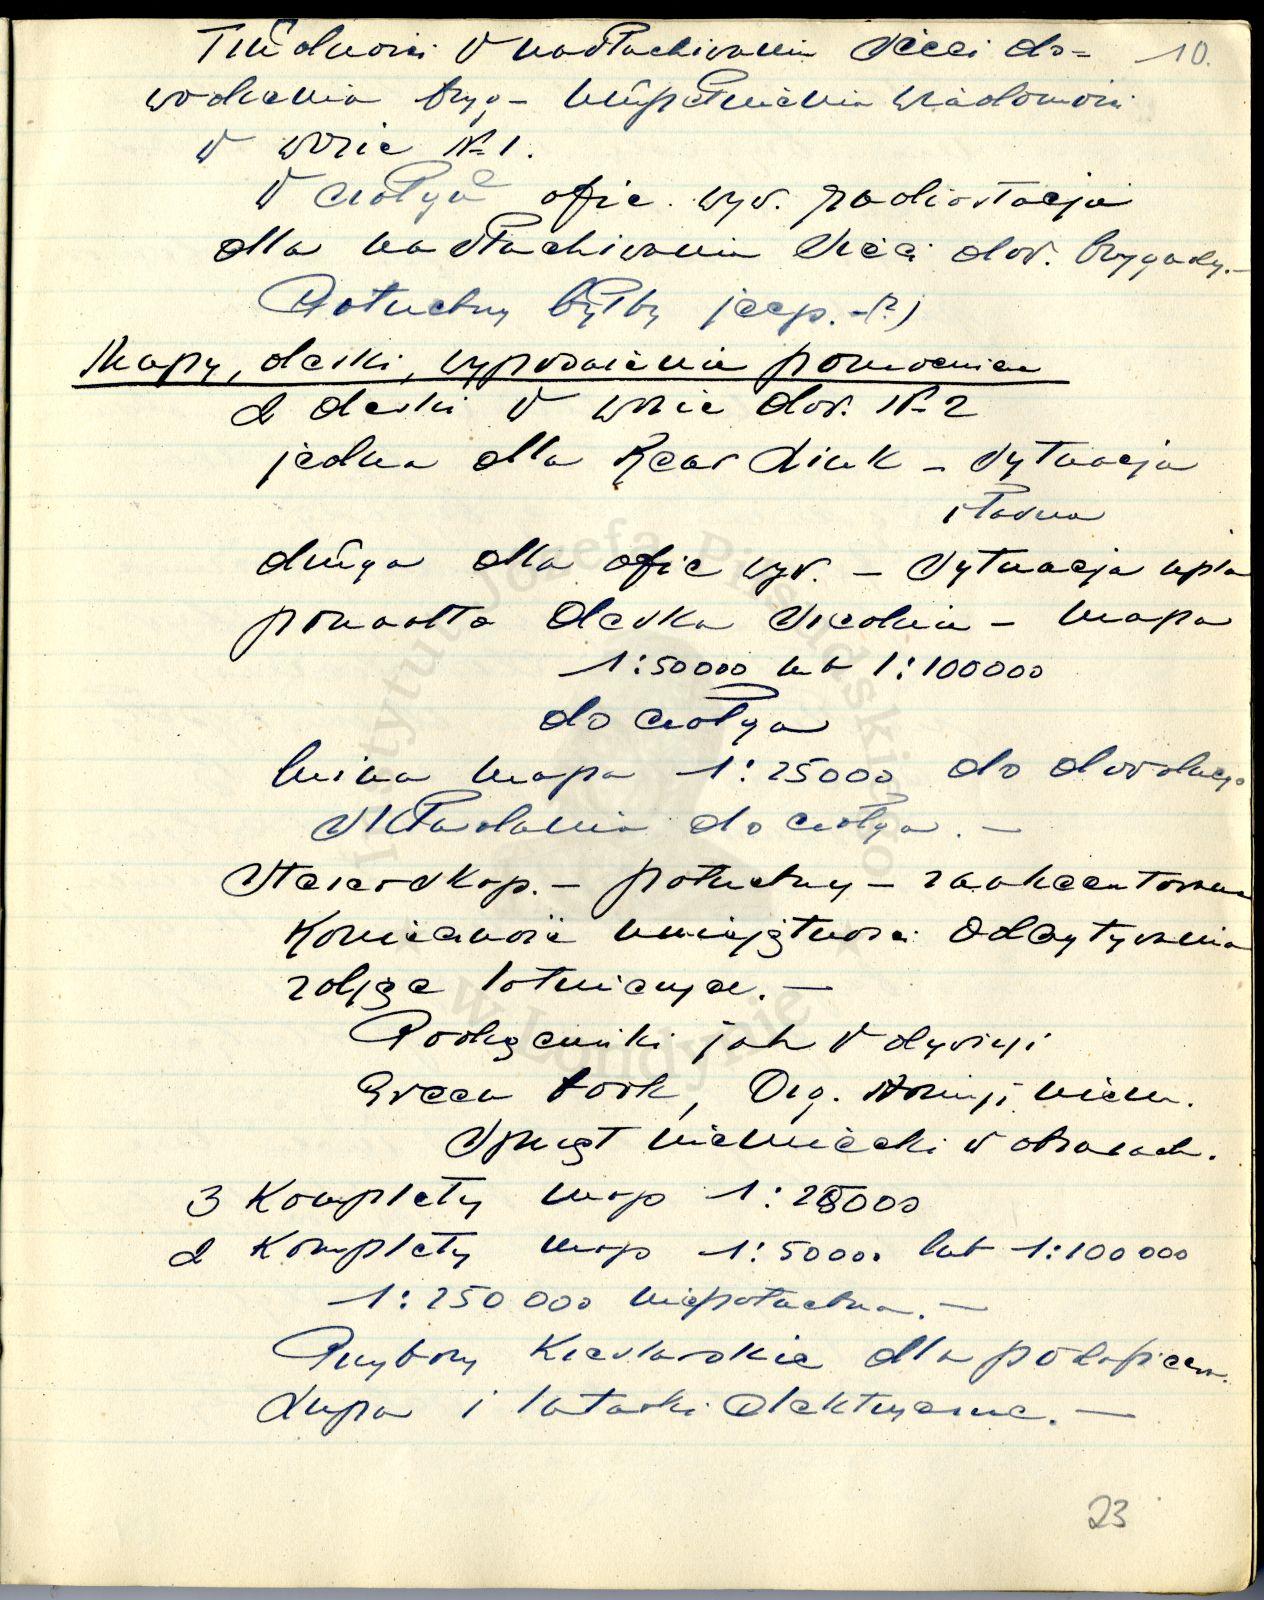 10.
Trudności w nasłuchiwaniu sieci do=
wodzenia bryg – uzupełnienie wiadomości
w wozie № 1.
W czołgu ofic. wyw. radiostacja
dla nasłuchiwania sieci dow. brygady.–
Potrzebny byłby jeep.–(?)
Mapy, deski, wyposażenie pomocnicze
2 deski w wozie dow. № 2
jedna dla Rear Link – sytuacja
własna
druga dla ofic wyw. – sytuacja npla
ponadto deska średnia – mapa
1:50000 lub 1:100000
do czołga
luźna mapa 1:25000 do dowolnego
składania do czołga. –
Stereoskop. – potrzebny – zaakcentowana
konieczność umiejętności odczytywania
zdjęć lotniczych. –
Podręczniki jak w dywizji
Green book, Org. Armji niem.
Sprzęt niemiecki w obrazach.
3 komplety map 1:25000
2 komplety map 1:50000 lub 1:100000
1:250 000 niepotrzebna. –
Przybory kreślarskie dla podoficera.
Lupa i latarki elektryczne. –
23
Instytut Józefa Piłsudskiego
w Londynie